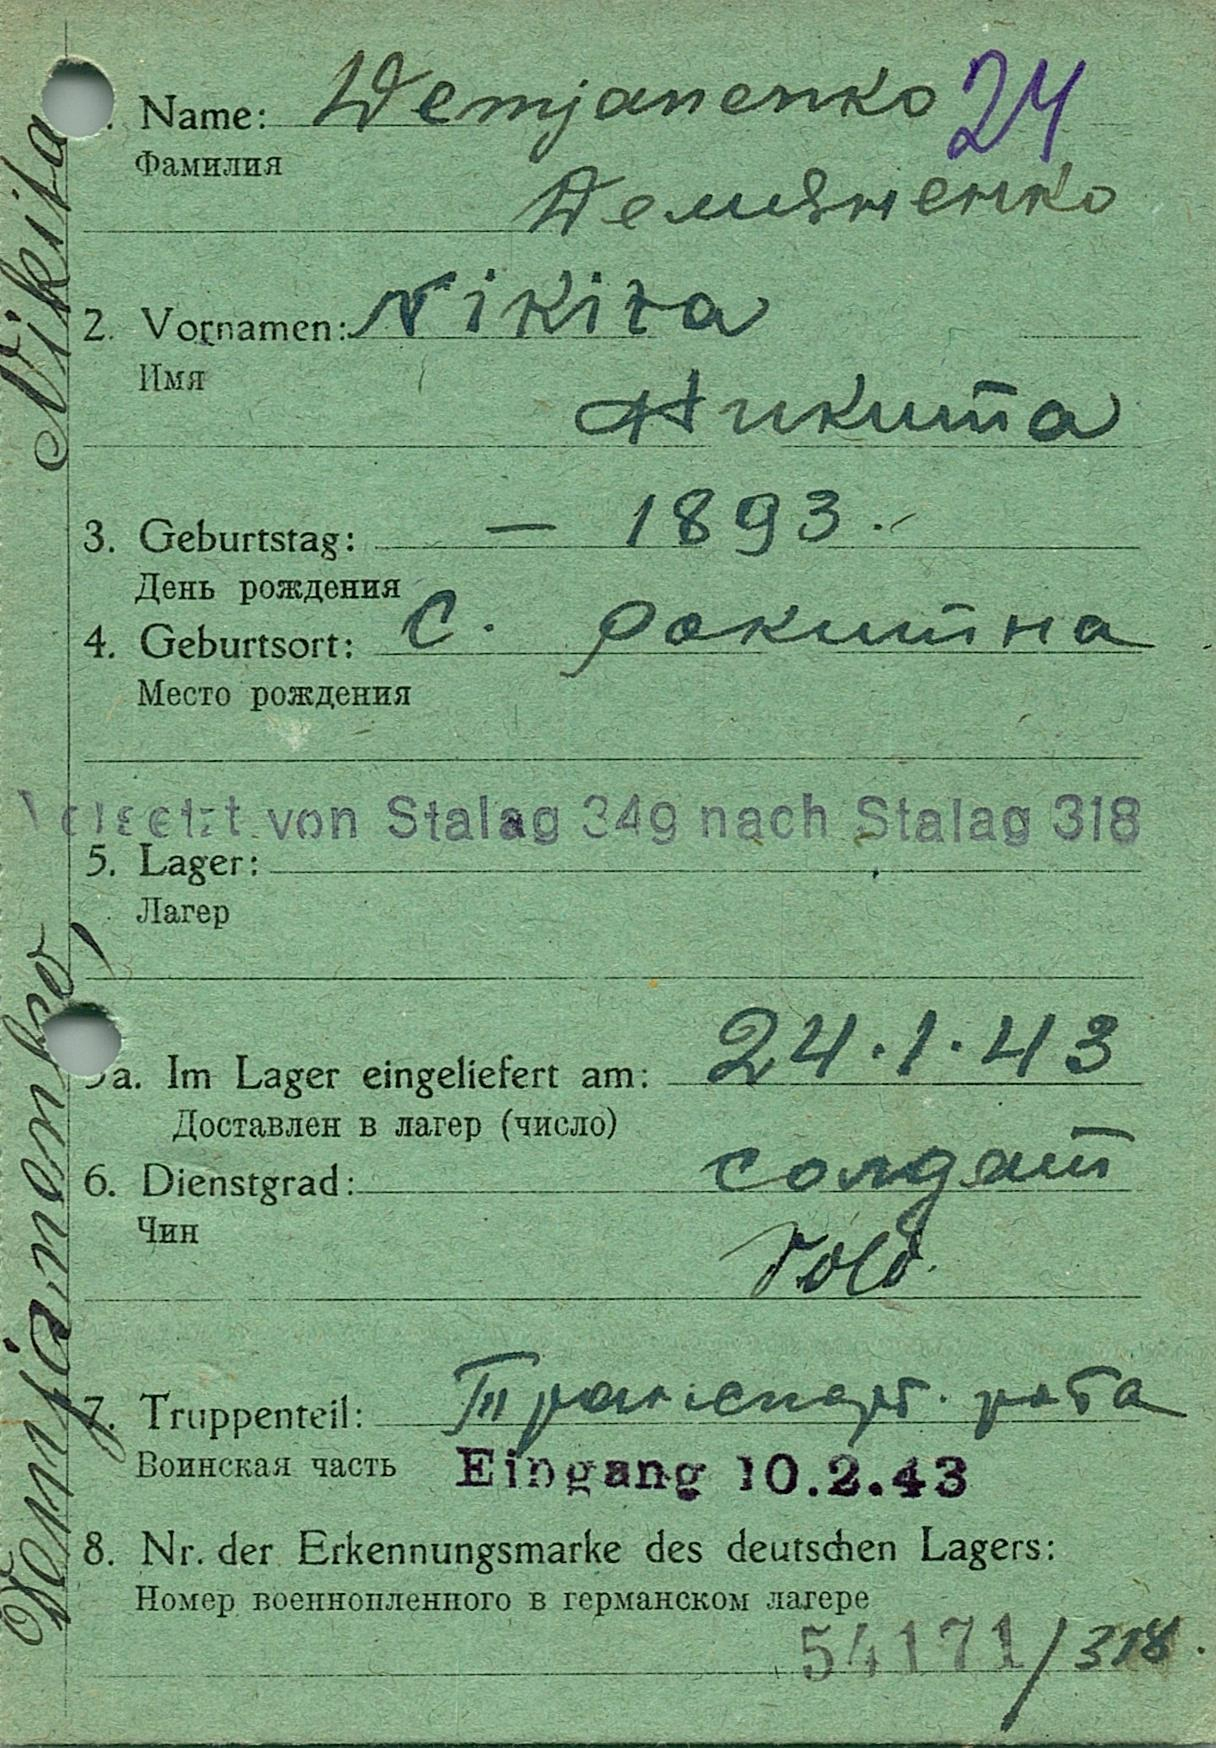 Name: Demjanenko 24
Фамилия
Демяненко
2. Vornamen: Nikita
Имя
Никита
3. Geburtstag: — 1893.
День рождения
4. Geburtsort: С. Ракитна
Место рождения
Versetzt von Stalag 349 nach Stalag 318
5. Lager:
Лагер
5a. Im Lager eingeliefert am: 24.1.43
Доставлен в лагер (число)
6. Dienstgrad: солдат
Чин
Sold.
7. Truppenteil: Транспорт. рота
Воинская часть Eingang 10.2.43
8. Nr. der Erkennungsmarke des deutschen Lagers:
Номер военнопленного в германском лагере
54171/318.
Demjanenko, Nikita